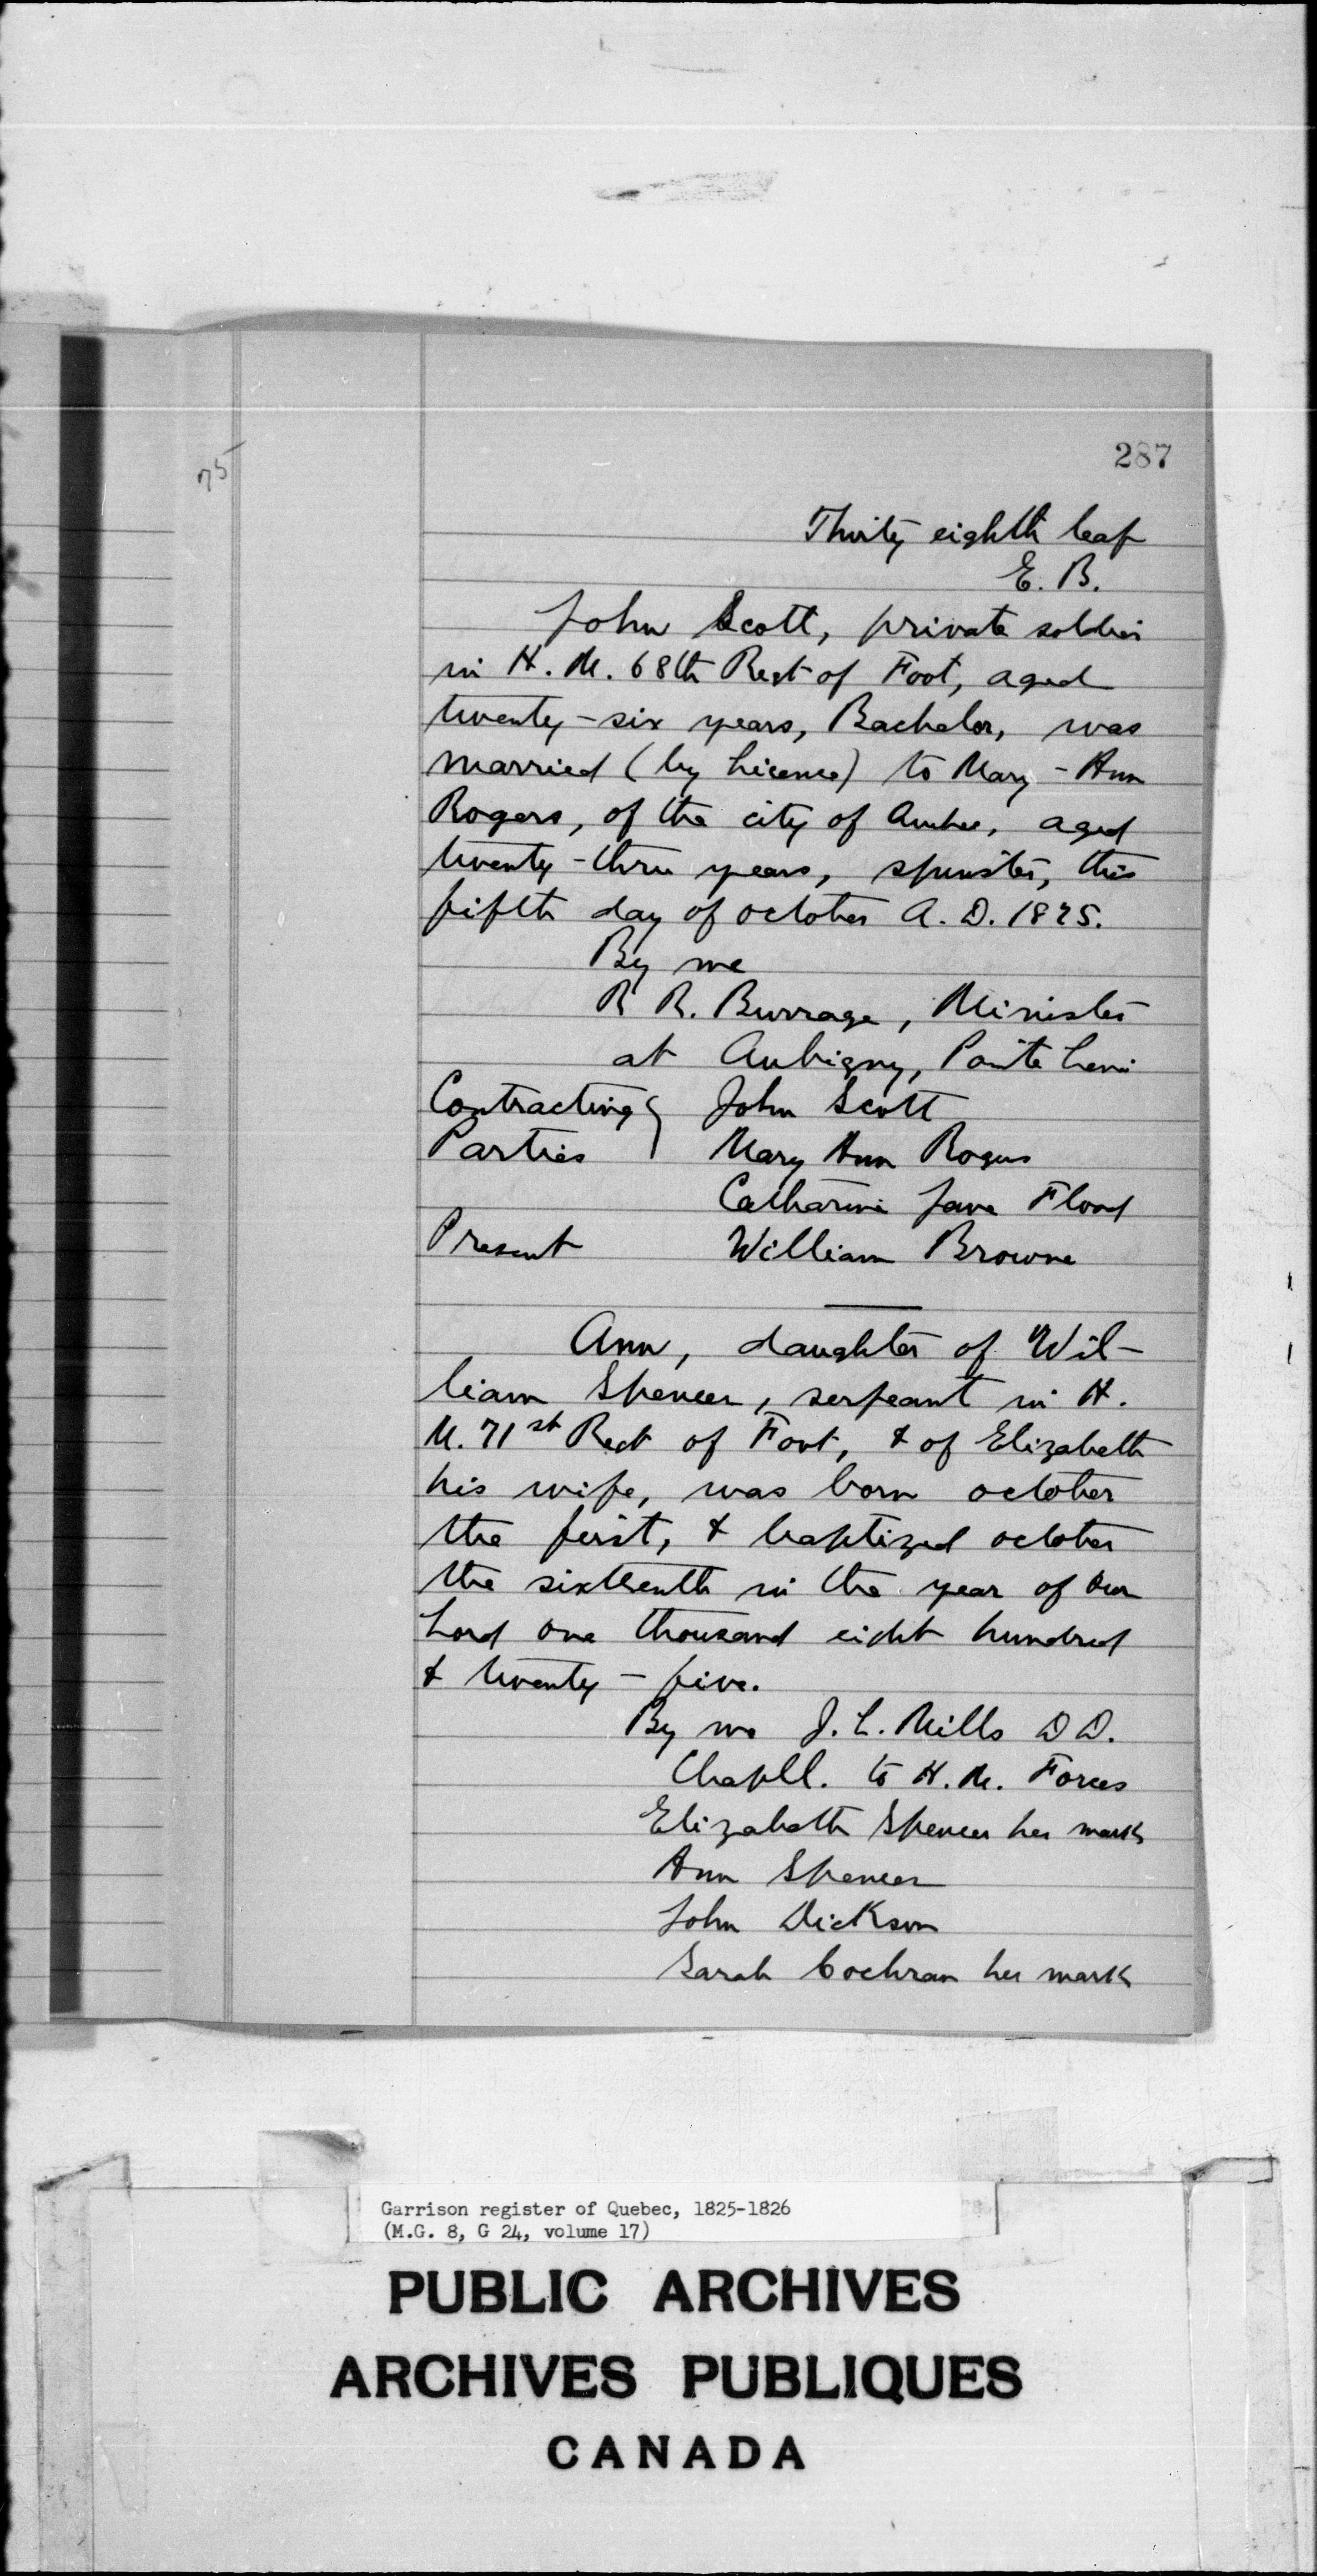 287
75
Thirty eighth leaf
E. B.
John Scott, private soldier
in H. M. 68th Regt of Foot, aged
twenty-six years, Bachelor, was
married (by Licence) to Mary-Ann
Rogers, of the city of Quebec, aged
twenty-three years, spinster, this
fifth day of october A. D. 1825.
By me
R R. Burrage, Minister
at Aubigny, Pointe Levi
Contracting } John Scott
Parties Mary Ann Rogers
Catharine Jane Flood
Present William Browne
Ann, daughter of Wil-
liam Spencer, serjeant in H.
M. 71st Regt of Foot, & of Elizabeth
his wife, was born october
the first, & baptized october
the sixteenth in the year of our
Lord one thousand eight hundred
& twenty-five.
By me J. L. Mills D D.
Chapll. to H. M. Forces
Elizabeth Spencer her mark
Ann Spencer
John Dickson
Sarah Cochran her mark
Garrison register of Quebec, 1825-1826
(M.G. 8, G 24, volume 17)
PUBLIC ARCHIVES
ARCHIVES PUBLIQUES
CANADA